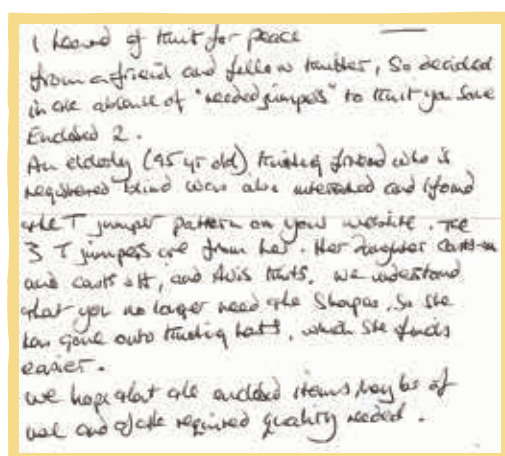 I heard of knit for peace
from a friend and fellow knitter, So decided
in the absence of "needed jumpers" to knit you some
Enclosed 2.
An elderly (95 yr old) knitting friend who is
registered blind was also interested and I found
the T jumper pattern on your website. The
3 T jumpers are from her. Her daughter casts-on
and casts off, and Avis knits. We understand
that you no longer need the Shapes, So she
has gone onto knitting hats, which she finds
easier.
We hope that the enclosed items may be of
use and of the required quality needed.